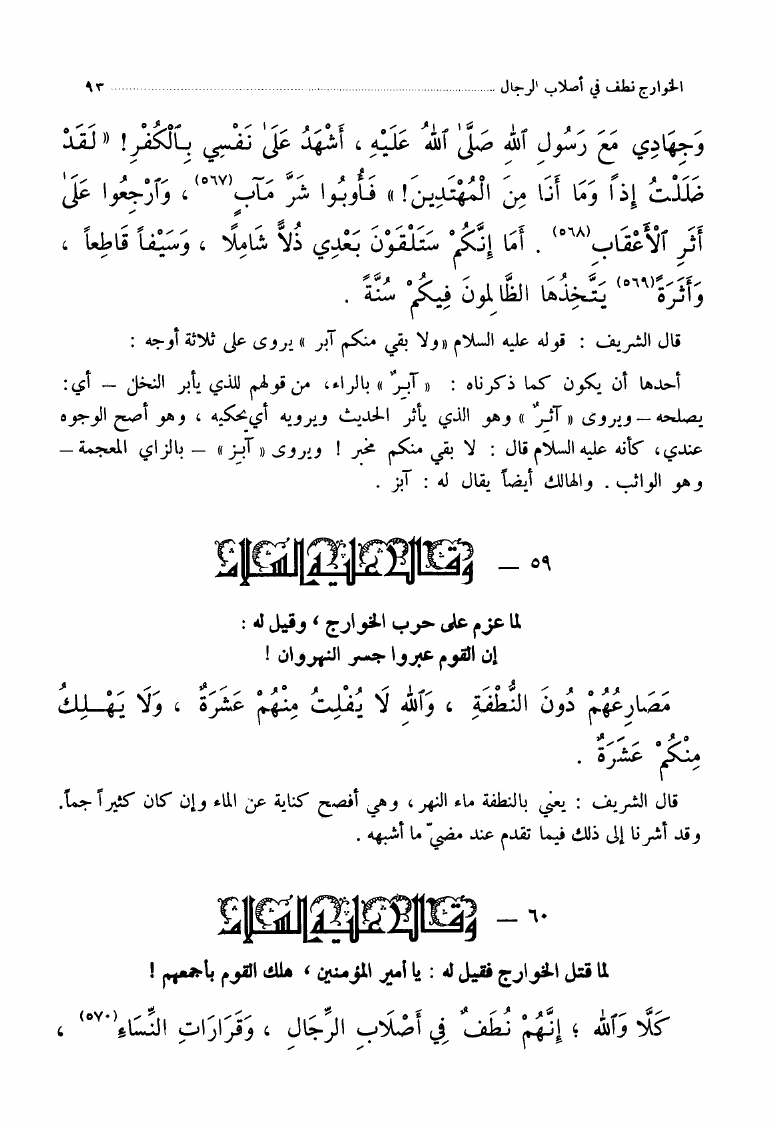 الخوارج نطف في أصلاب الرجال ........ ٩٣
وَجِهَادِي مَعَ رَسُولِ ٱللهِ صَلَّىٰ ٱللهُ عَلَيْهِ ، أَشْهَدُ عَلَىٰ نَفْسِي بِٱلْكُفْرِ ! « لَقَدْ
ضَلَلْتُ إِذاً وَمَا أَنَا مِنَ الْمُهْتَدِينَ! » فَأُوبُوا شَرَّ مَآبٍ (٥٦٧) ، وَٱرْجِعُوا عَلَىٰ
أَثَرِ ٱلْأَعْقَابِ (٥٦٨) . أَمَا إِنَّكُمْ سَتَلْقَوْنَ بَعْدِي ذُلاًّ شَامِلًا ، وَسَيْفاً قَاطِعاً ،
وَأَثَرَةً (٥٦٩) يَتَّخِذُهَا الظَّالِمونَ فِيكُمْ سُنَّةً .
قال الشريف : قوله عليه السلام «ولا بقي منكم آبر » يروى على ثلاثة أوجه :
أحدها أن يكون كما ذكرناه : « آبِرٌ » بالراء، من قولهم للذي يأبر النخل – أي:
يصلحه – ويروى « آثِرٌ » وهو الذي يأثر الحديث ويرويه أي يحكيه ، وهو أصح الوجوه
عندي، كأنه عليه السلام قال : لا بقي منكم مخبر ! ويروى « آبِز » – بالزاي المعجمة –
وهو الواثب . والهالك أيضاً يقال له : آبز .
٥٩ – وقال عليه السلام
لما عزم على حرب الخوارج ، وقيل له :
إن القوم عبروا جسر النهروان !
مَصَارِعُهُمْ دُونَ النُّطْفَةِ ، وَٱللهِ لَا يُفْلِتُ مِنْهُمْ عَشَرَةٌ ، وَلَا يَهْلِكُ
مِنْكُمْ عَشَرَةٌ .
قال الشريف : يعني بالنطفة ماء النهر ، وهي أفصح كناية عن الماء وإن كان كثيراً جماً.
وقد أشرنا إلى ذلك فيما تقدم عند مضيّ ما أشبهه .
٦٠ – وقال عليه السلام
لما قتل الخوارج فقيل له : يا أمير المؤمنين ، هلك القوم بأجمعهم !
كَلَّا وَٱللهِ ؛ إِنَّهُمْ نُطَفٌ فِي أَصْلَابِ الرِّجَالِ ، وَقَرَارَاتِ النِّسَاءِ (٥٧٠) ،